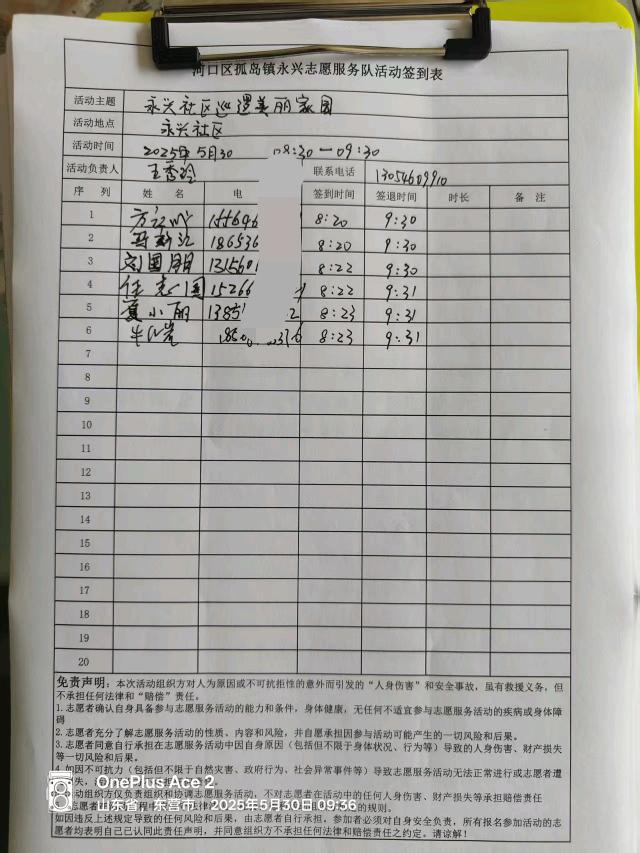 河口区孤岛镇永兴志愿服务队活动签到表
活动主题 永兴社区巡逻美丽家园
活动地点 永兴社区
活动时间 2025年5月30 08:30—09:30
活动负责人 王秀玲 联系电话 13054609910
序列 姓名 电 签到时间 签退时间 时长 备注
1 8:20 9:30
2 18653 8:20 9:30
3 刘国明 131560 8:22 9:30
4 任志国 15266 8:22 9:31
5 夏小丽 1385 2 8:23 9:31
6 8:23 9:31
7
8
9
10
11
12
13
14
15
16
17
18
19
20
免责声明：本次活动组织方对人为原因或不可抗拒性的意外而引发的“人身伤害”和安全事故，虽有救援义务，但
不承担任何法律和“赔偿”责任。
1.志愿者确认自身具备参与志愿服务活动的能力和条件，身体健康，无任何不适宜参与志愿服务活动的疾病或身体障
碍
2.志愿者充分了解志愿服务活动的性质、内容和风险，并自愿承担因参与活动可能产生的一切风险和后果。
3.志愿者同意自行承担在志愿服务活动中因自身原因（包括但不限于身体状况、行为等）导致的人身伤害、财产损失
等一切风险和后果。
4.如因不可抗力（包括但不限于自然灾害、政府行为、社会异常事件等）导致志愿服务活动无法正常进行或志愿者遭
动组织方仅负责组织和协调志愿服务活动，不对志愿者在活动中的任何人身伤害、财产损失等承担赔偿责任
的规则。
如因违反上述规定导致的任何风险和后果，由志愿者自行承担。参加者必须对自身安全负责，所有报名参加活动的志
愿者均表明自己已认同此责任声明，并同意组织方不承担任何法律和赔偿责任之约定。请谅解！
OnePlus Ace 2
山东省，东营市，2025年5月30日 09:36